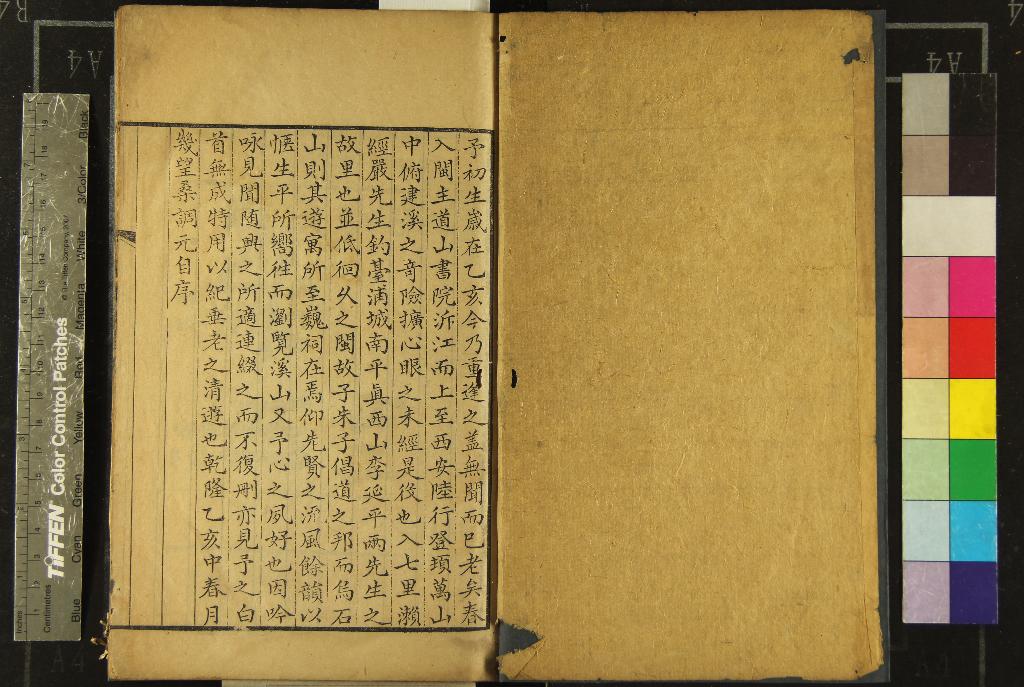 予初生歲在乙亥今乃重逢之蓋無聞而已老矣春
入閩主道山書院泝江而上至西安陸行登頊萬山
中俯建溪之奇險擴心眼之未經是役也入七里瀨
經嚴先生釣臺浦城南平眞西山李延平兩先生之
故里也並低徊久之閩故子朱子倡道之邦而烏石
山則其遊寓所至巍祠在焉仰先賢之流風餘韻以
愜生平所嚮往而瀏覧溪山又予心之夙好也因吟
咏見聞随興之所適連綴之而不復刪亦見予之白
首無成特用以紀垂老之清遊也乾隆乙亥中春月
幾望桑調元自序
TIFFEN Color Control Patches
© The Tiffen Company, 2007
Inches
Centimetres
Blue
Cyan
Green
Yellow
Red
Magenta
White
3/Color
Black
A4
A4
A4